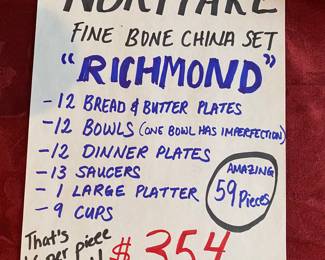 NORITAKE
FINE BONE CHINA SET
"RICHMOND"
-12 BREAD & BUTTER PLATES
-12 BOWLS (ONE BOWL HAS IMPERFECTION)
-12 DINNER PLATES
-13 SAUCERS
-1 LARGE PLATTER
-9 CUPS
AMAZING
59 PIECES
That's
per piece
$354